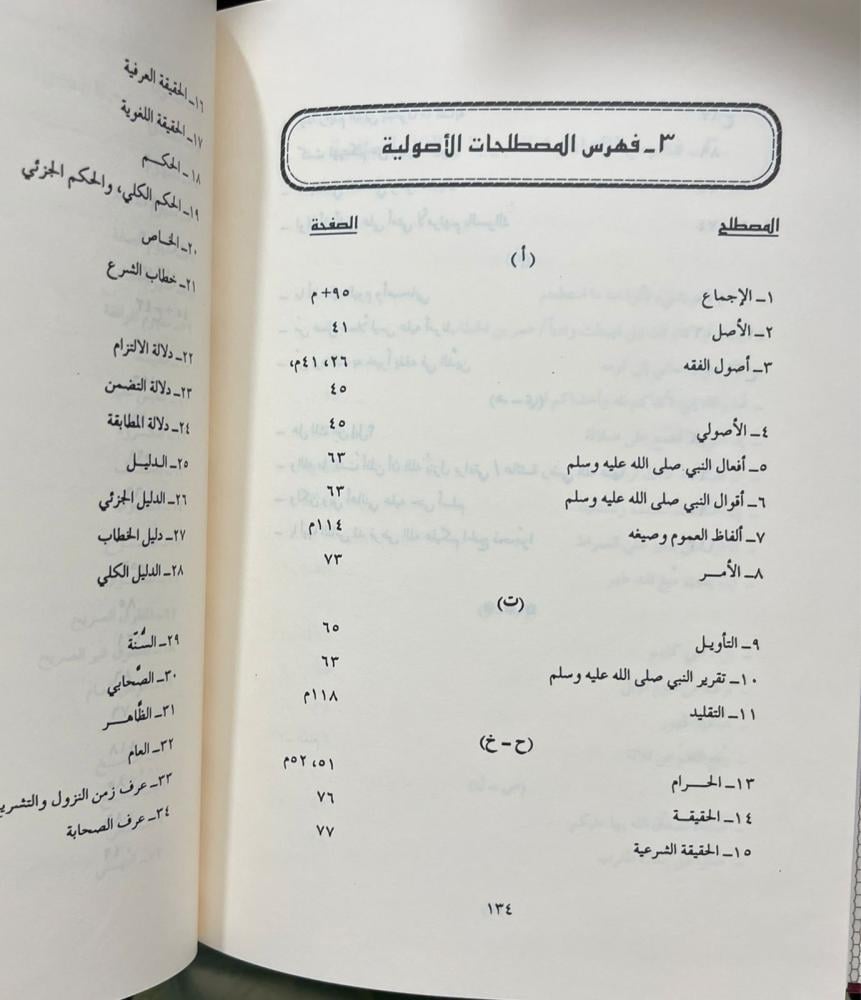 ٣ـ فهرس المصطلحات الأصولية
المصطلح الصفحة
(أ)
١ـ الإجماع ٩٥+ م
٢ـ الأصل ٤١
٣ـ أصول الفقه ٢٦، ٤١م،
٤٥
٤ـ الأصولي ٤٥
٥ـ أفعال النبي صلى الله عليه وسلم ٦٣
٦ـ أقوال النبي صلى الله عليه وسلم ٦٣
٧ـ ألفاظ العموم وصيغه ١١٤م
٨ـ الأمــر ٧٣
(ت)
٩ـ التأويـل ٦٥
١٠ـ تقرير النبي صلى الله عليه وسلم ٦٣
١١ـ التقليد ١١٨م
(ح - خ)
١٣ـ الحــرام ٥١، ٥٢م
١٤ـ الحقيقـة ٧٦
١٥ـ الحقيقة الشرعية ٧٧
١٣٤
١٦ـ الحقيقة العرفية
١٧ـ الحقيقة اللغوية
١٨ـ الحكـم
١٩ـ الحكم الكلي، والحكم الجزئي
٢٠ـ الخاص
٢١ـ خطاب الشرع
٢٢ـ دلالة الالتزام
٢٣ـ دلالة التضمن
٢٤ـ دلالة المطابقة
٢٥ـ الدليـل
٢٦ـ الدليل الجزئي
٢٧ـ دليل الخطاب
٢٨ـ الدليل الكلي
٢٩ـ السُّنّة
٣٠ـ الصَّحابي
٣١ـ الظَّاهـر
٣٢ـ العام
٣٣ـ عرف زمن النزول والتشريع
٣٤ـ عرف الصحابة